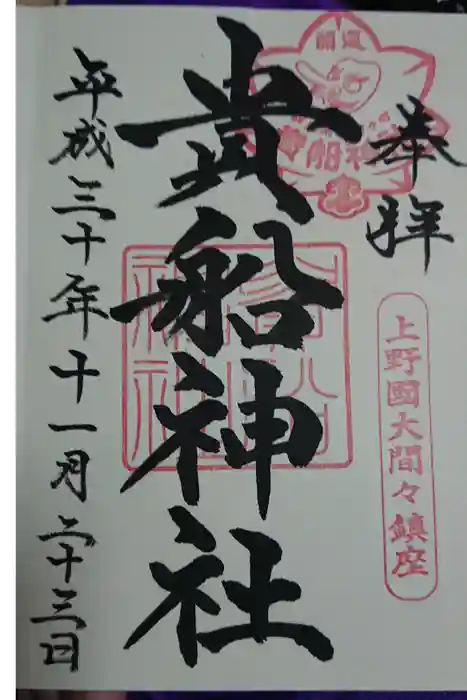 奉拝
開運
貴船神社
上野國大間々鎮座
貴船神社
平成三十年十一月二十三日